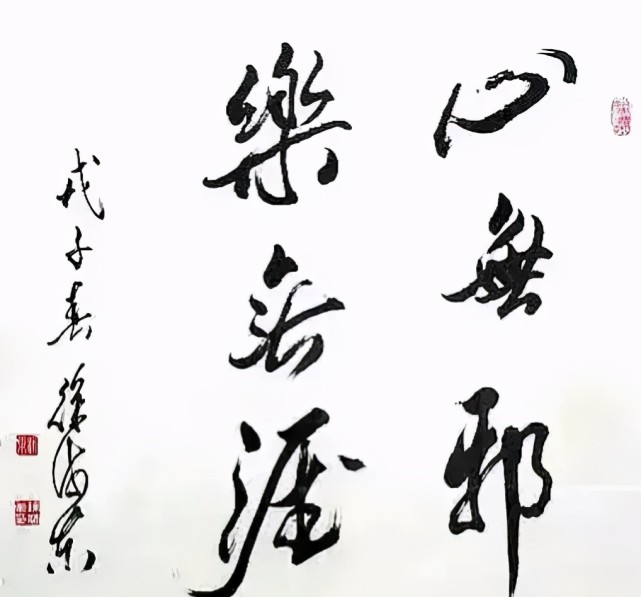 心無邪
樂無涯
戊子春 徐海東